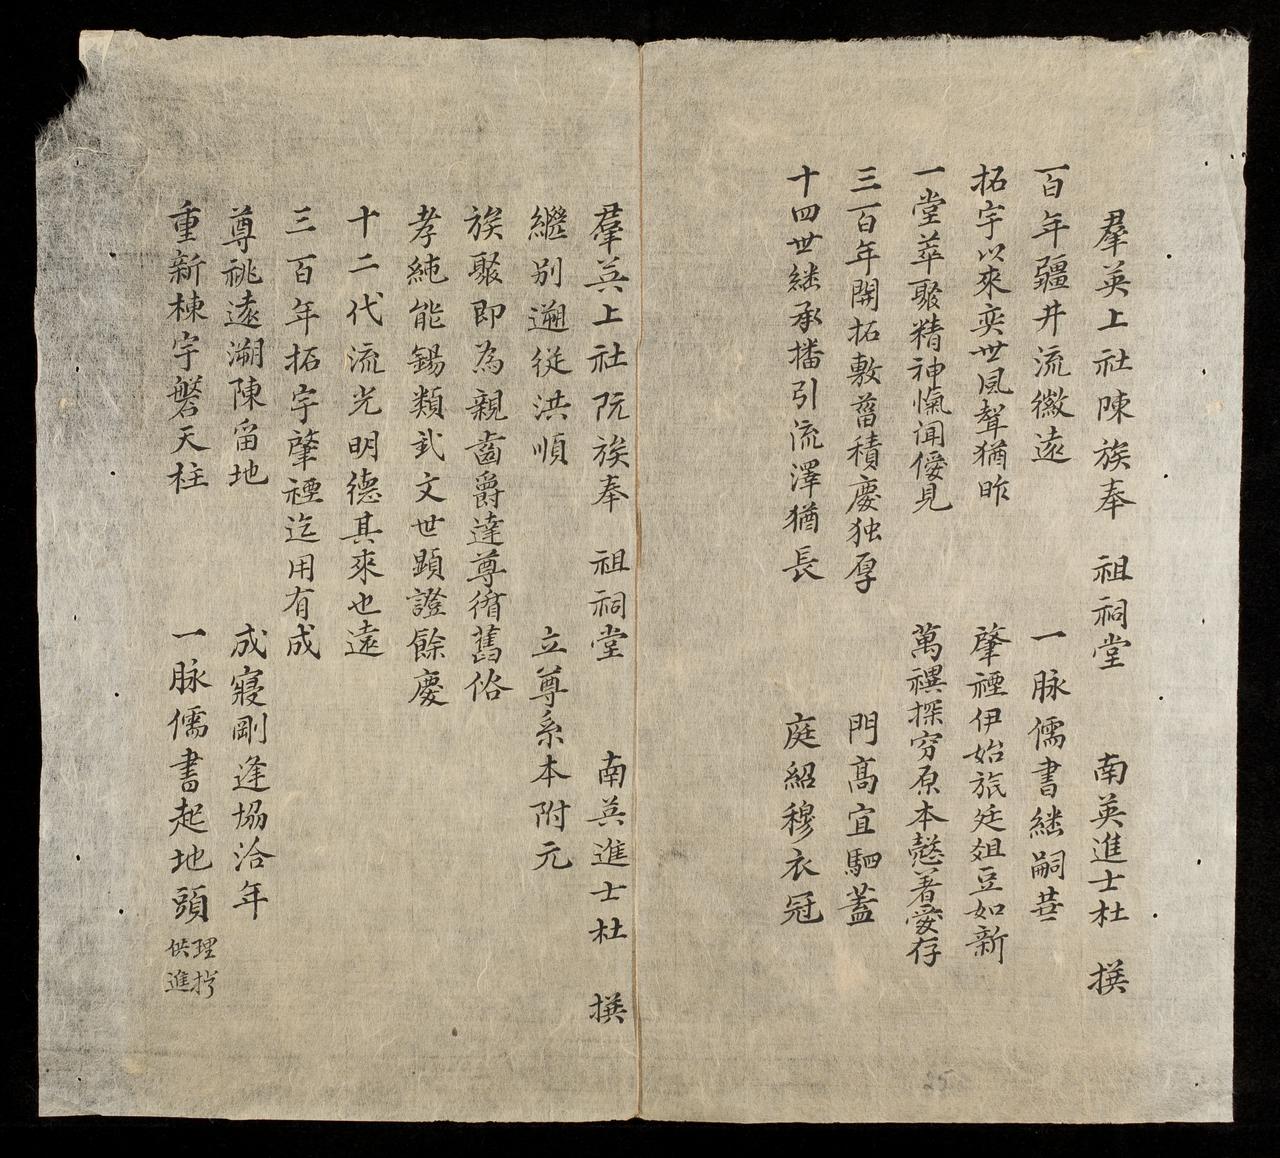 羣英上社陳族奉 祖祠堂 南英進士杜 撰
百年疆井流徽遠 一脉儒書継嗣
拓宇以來奕世風聲猶昨 肇禋伊始旅廷俎豆如新
一堂萃聚精神愾闻僾見 萬禩探窮原本慤著愛存
三百年開拓敷菑積慶独厚 門髙宜駟蓋
十四世継承播引流澤猶長 庭紹穆衣冠
羣英上社阮族奉 祖祠堂 南英進士杜 撰
繼别遡従洪順 立尊系本附元
族聚即為親齒爵達尊脩舊俗
孝純能錫類弎文世顕證餘慶
十二代流光明德其來也遠
三百年拓宇肇禋迄用有成
尊祧遠溯陳畄地 成寢剛逢協洽年
重新棟宇磐天柱 一脉儒書起地頭 理拧供進